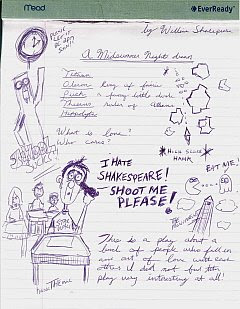 Mead
EverReady
by William Shakespeare
A Midsummer Night dream
Titania
Oberon king of fairies
Puck a funny little devil
Theseus ruler of Athens
Hippolyta
What is love?
Who cares?
HIGH SCORE
HANK
EAT ME!
I HATE
SHAKESPEARE!
SHOOT ME
PLEASE!
This is a play about a
bunch of people who fall in
and out of love with each
other. I did not find this
play very interesting at all!